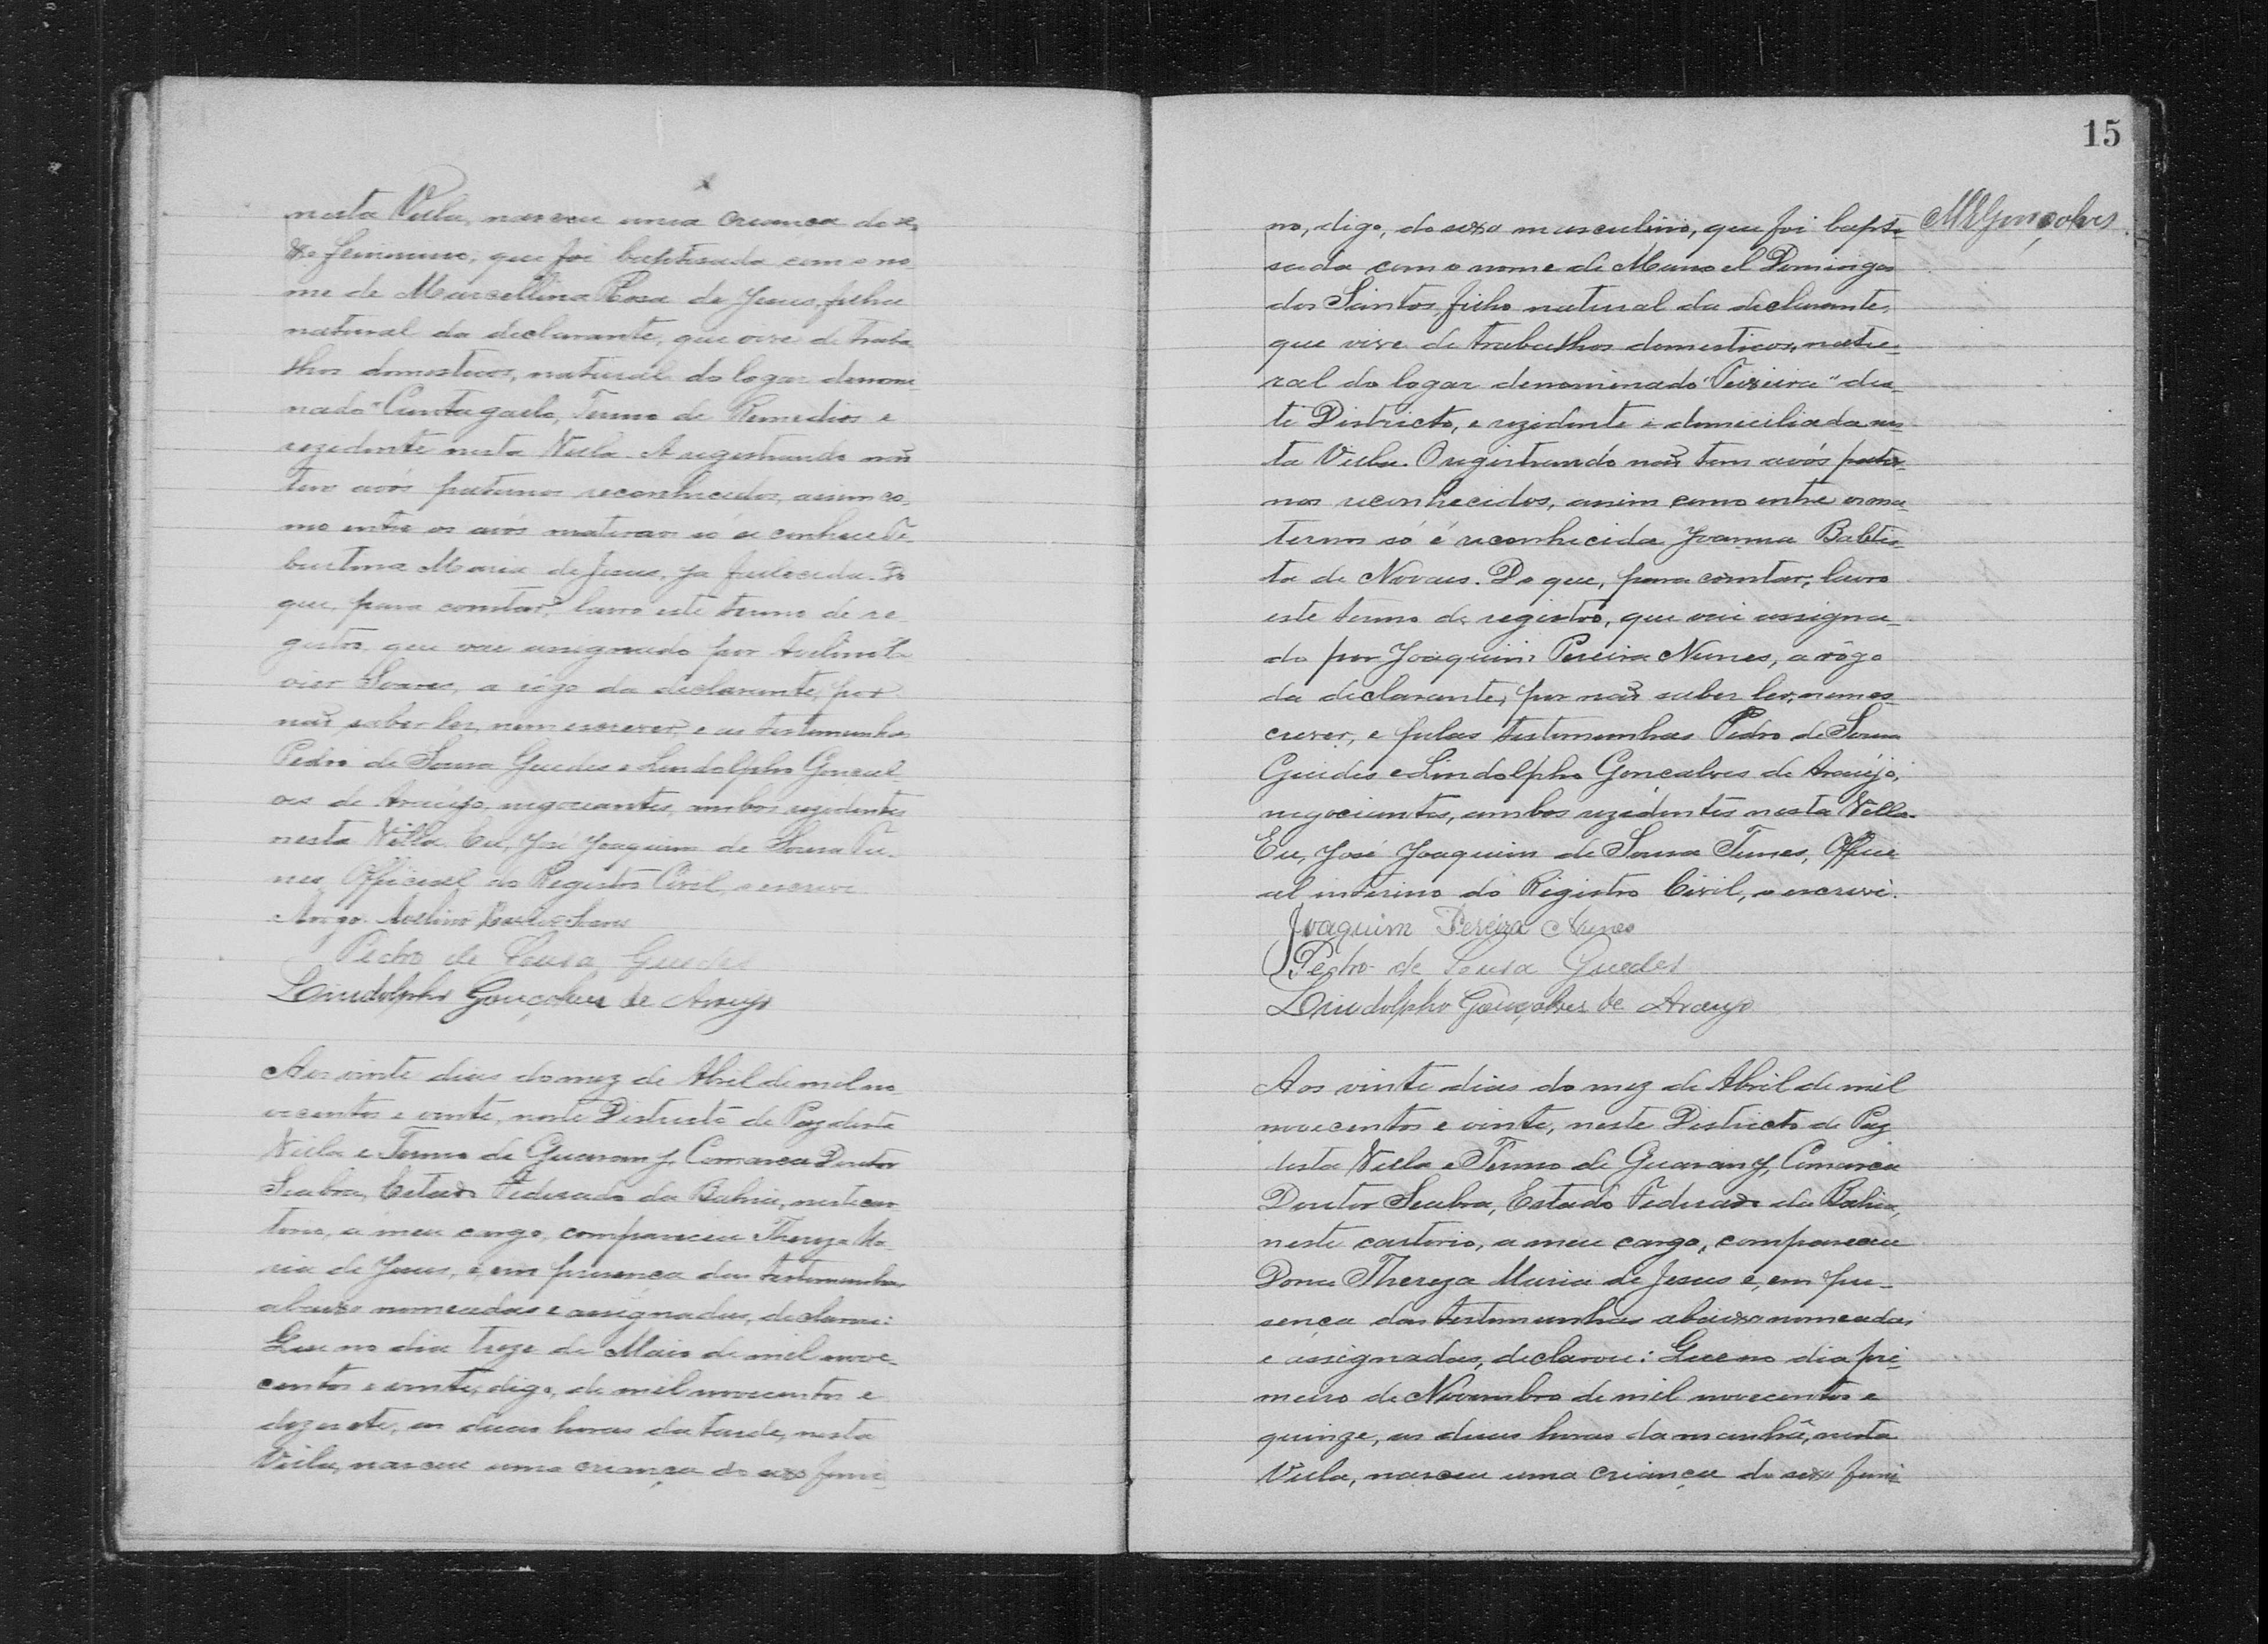 nesta Villa, nasceu uma creança do se-
xo feminino, que foi baptisada com o no-
me de Marcellina Rosa de Jesus, filha
natural da declarante, que vive de traba-
lhos domesticos, natural do logar denomi-
nado "Cantagallo, Termo de Remedios e
rezidente nesta Villa. A registranda não
tem avós paternos reconhecidos, assim co-
mo entre os avós maternos só se conhece
burtina Maria de Jesus, ja fallecida. Do
que, para constar, lavro este termo de re-
gistro, que vae assignado por Avelino
vier Soares, a rôgo da declarante, por
não saber ler, nem escrever, e as testemunhas
Pedro de Sousa Guedes e Lindolpho Gonçal-
ves de Araújo, negociantes, ambos rezidentes
nesta Villa. Eu, José Joaquim de Sousa Tu-
nes, Official do Registro Civil, o escrevi
Arogo Avelino Soares
Pedro de Sousa Guedes
Lindolpho Gonçalves de Araujo
Aos vinte dias do mez de Abril de mil no-
vecentos e vinte, neste Districto de Paz desta
Villa e Termo de Guarany, Comarca Doutor
Seabra, Estado Federado da Bahia, neste car-
torio, a meu cargo, compareceu Thereza Ma-
ria de Jesus, e, em presença das testemunhas
abaixo nomeadas e assignadas, declarou:
Que no dia treze de Maio de mil nove-
centos e vinte, digo, de mil novecentos e
dezesete, as duas horas da tarde, nesta
Villa, nasceu uma creança do sexo femi-
15
MRGonçalves
no, digo, do sexo masculino, que foi bapti-
sada com o nome de Manoel Domingos
dos Santos, filho natural da declarante,
que vive de trabalhos domesticos, natu-
ral do logar denominado "Teixeira" des-
te Districto, e rezidente e domiciliada nes-
ta Villa. O registrando não tem avós pater-
nos reconhecidos, assim como entre os ma-
ternos só é reconhecida Joanna Baltis-
ta de Novaes. Do que, para constar, lavro
este termo de registro, que vai assigna-
do por Joaquim Pereira Nunes, a rôgo
da declarante, por não saber ler, nem es-
crever, e pelas testemunhas Pedro de Sousa
Guedes e Lindolpho Gonçalves de Araújo,
negociantes, ambos rezidentes nesta Villa.
Eu, José Joaquim de Sousa Tunes, Offici-
al interino do Registro Civil, o escrevi.
Joaquim Pereira Nunes
Pedro de Sousa Guedes
Lindolpho Gonçalves de Araujo
Aos vinte dias do mez de Abril de mil
novecentos e vinte, neste Districto de Paz
desta Villa e Termo de Guarany, Comarca
Doutor Seabra, Estado Federado da Bahia,
neste cartorio, a meu cargo, compareceu
Dona Thereza Maria de Jesus e, em pre-
sença das testemunhas abaixo nomeadas
e assignadas, declarou: Que no dia pri-
meiro de Novembro de mil novecentos e
quinze, as duas horas da manhã, nesta
Villa, nasceu uma criança do sexo femi-